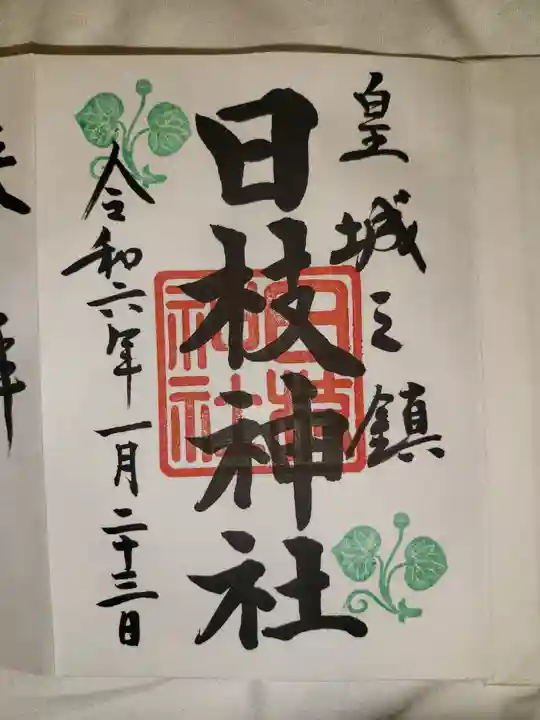 皇城之鎮
日枝神社
令和六年一月二十三日
日枝神社